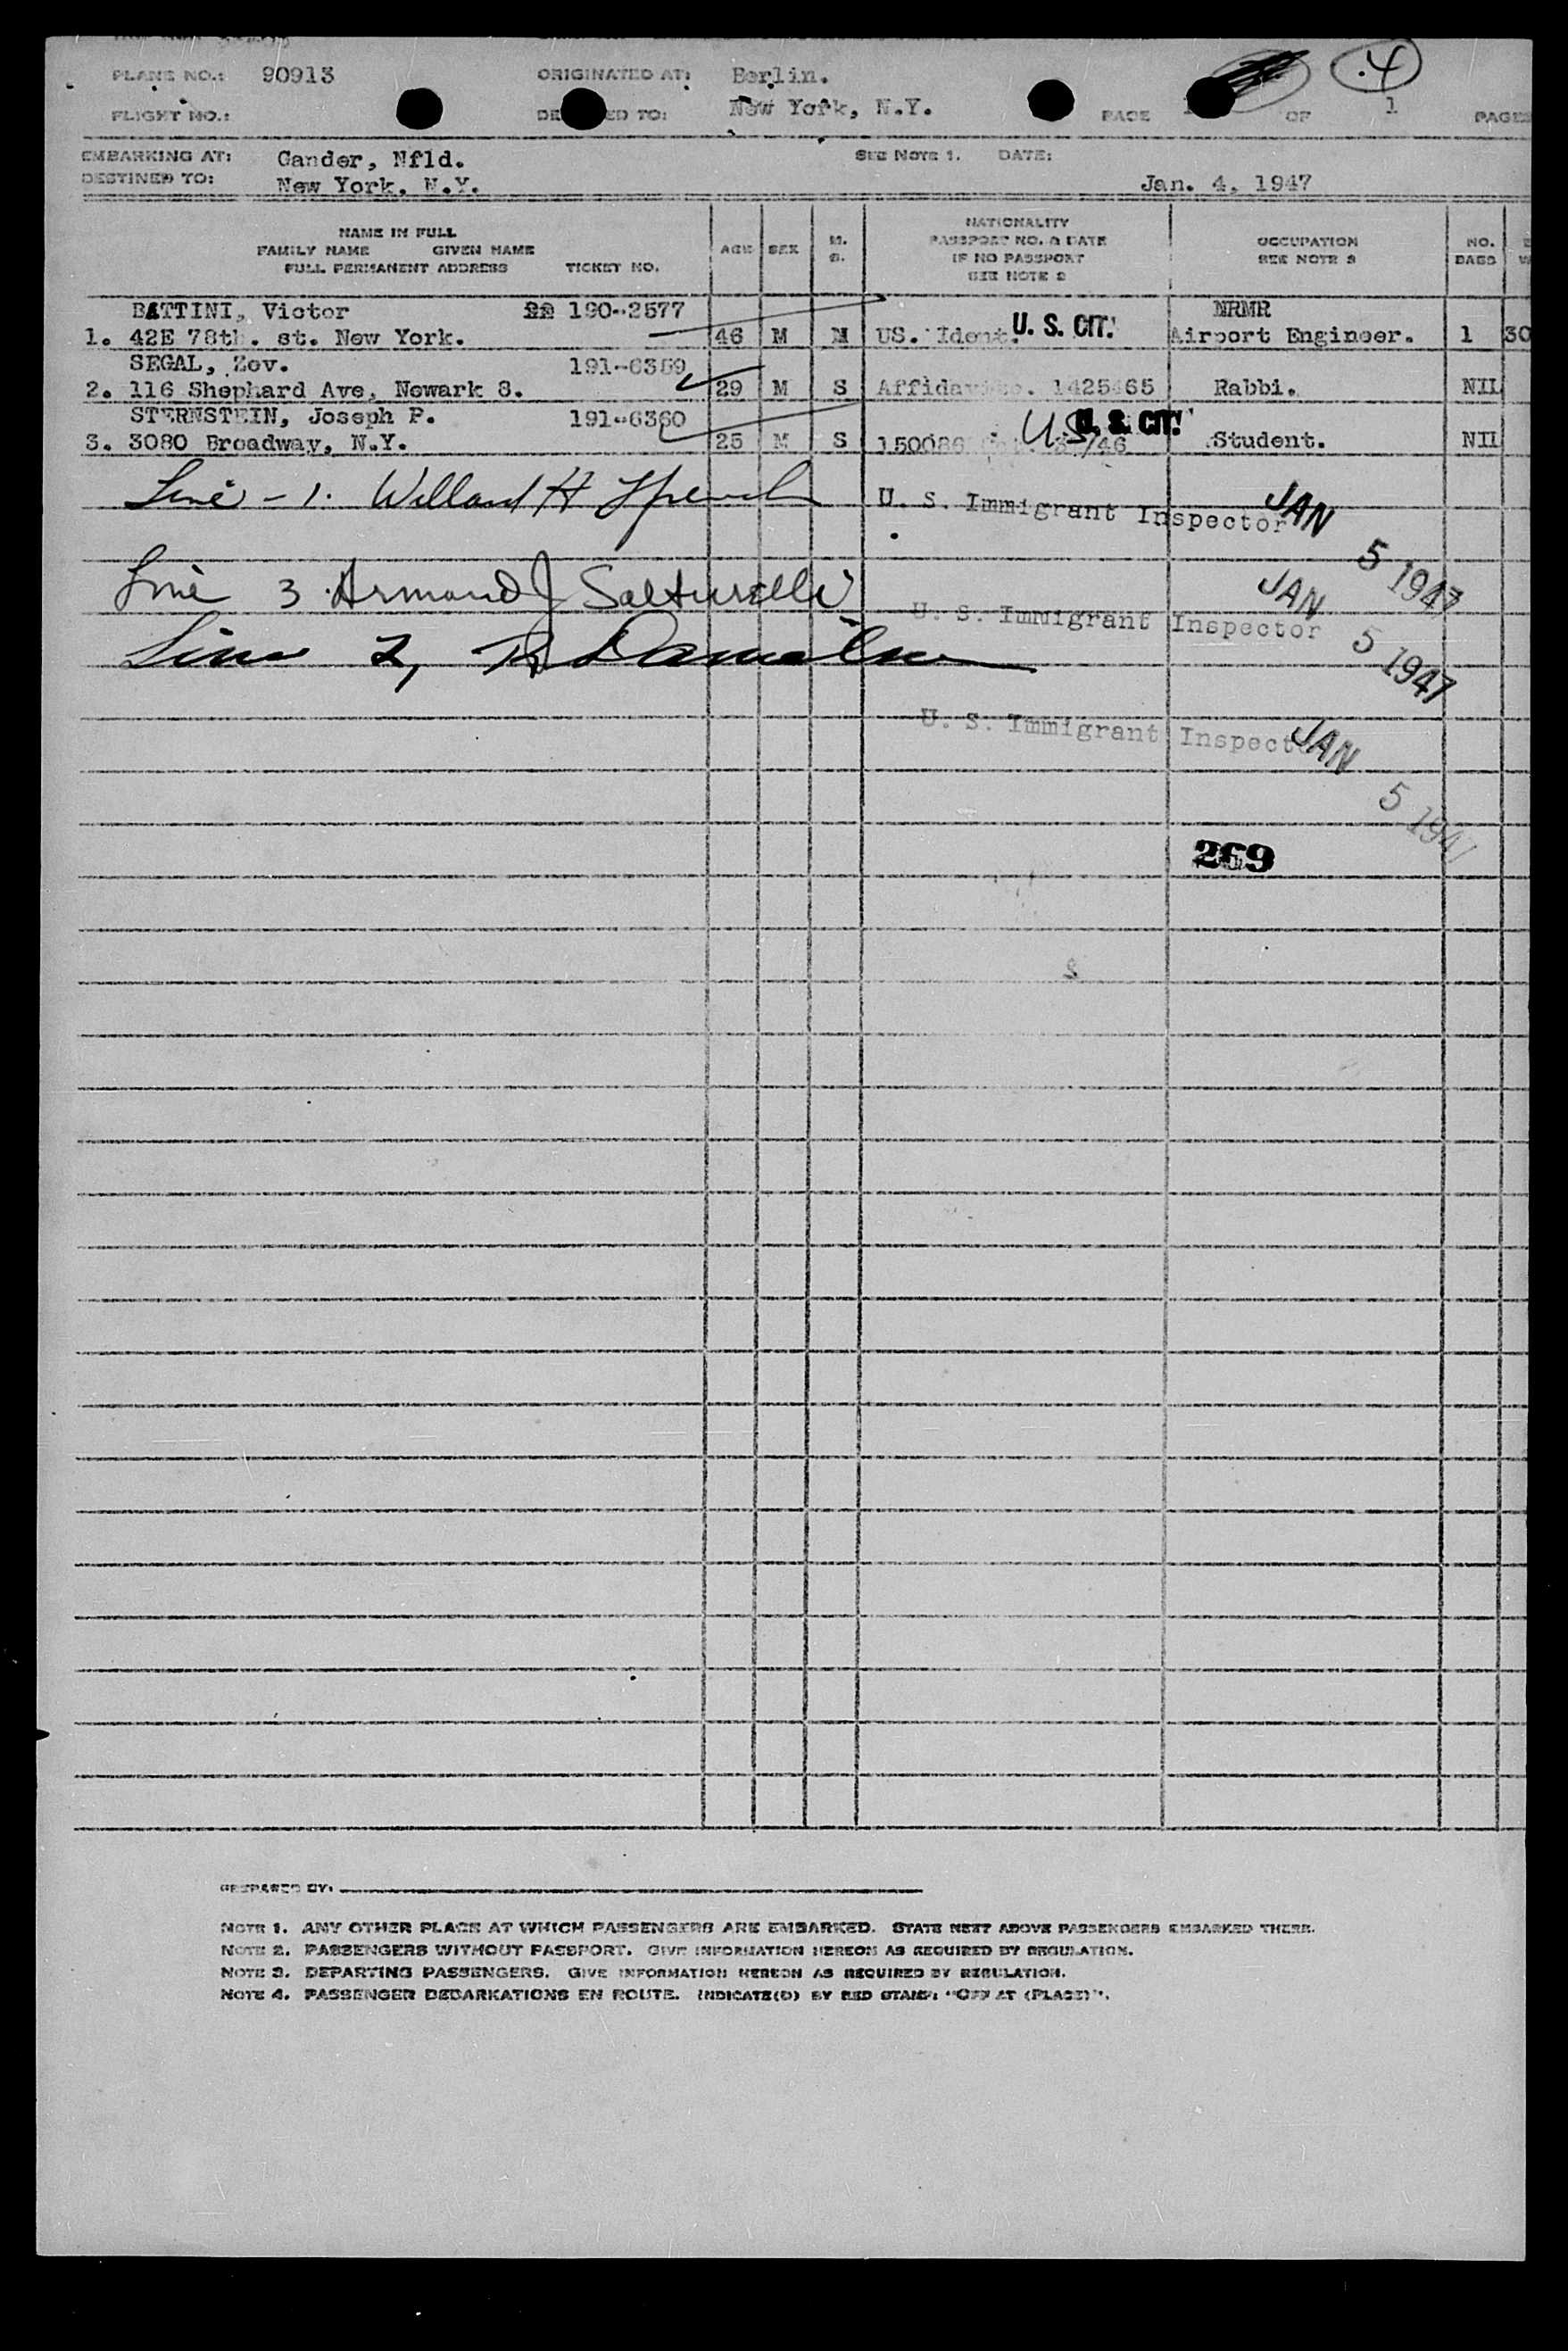 PLANE NO.: 90913 ORIGINATED AT: Berlin.
4
FLIGHT NO.: DE ED TO: New York, N.Y. PAGE 1 OF 1 PAGES
EMBARKING AT: Gander, Nfld. SEE NOTE 1. DATE:
DESTINED TO: New York, N.Y. Jan. 4, 1947
NAME IN FULL
FAMILY NAME GIVEN NAME
FULL PERMANENT ADDRESS TICKET NO.
AGE SEX M. S.
NATIONALITY
PASSPORT NO. & DATE
IF NO PASSPORT
SEE NOTE 2
OCCUPATION
SEE NOTE 3
NO.
BAGS
BATTINI, Victor 190-2577 NRMR
1. 42E 78th. st. New York. 46 M M US. Ident. U. S. CIT. Airport Engineer. 1 30
SEGAL, Zev. 191-6359
2. 116 Shephard Ave, Newark 8. 29 M S 1425465 Rabbi. NIL
STERNSTEIN, Joseph P. 191-6360 US U. S. CIT.
3. 3080 Broadway, N.Y. 25 M S /46 Student. NIL
Line - 1. Willard H U. S. Immigrant Inspector JAN 5 1947
Line 3. Armand J U. S. Immigrant Inspector JAN 5 1947
Line 2,
U. S. Immigrant Inspector JAN 5 1947
269
PREPARED BY:
NOTE 1. ANY OTHER PLACE AT WHICH PASSENGERS ARE EMBARKED. STATE NEXT ABOVE PASSENGERS EMBARKED THERE.
NOTE 2. PASSENGERS WITHOUT PASSPORT. GIVE INFORMATION HEREON AS REQUIRED BY REGULATION.
NOTE 3. DEPARTING PASSENGERS. GIVE INFORMATION HEREON AS REQUIRED BY REGULATION.
NOTE 4. PASSENGER DEBARKATIONS EN ROUTE. INDICATE(D) BY RED STAMP: "OFF AT (PLACE)".